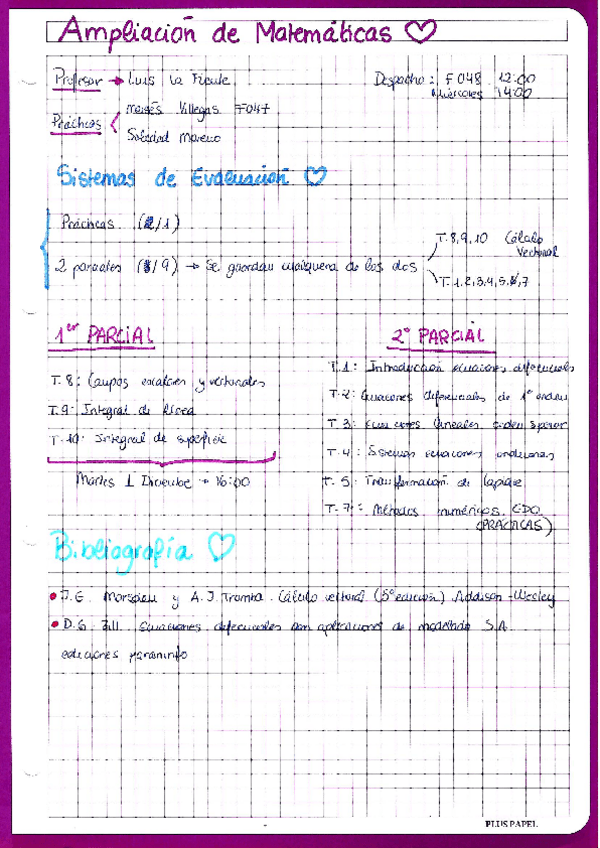 Ampliación de Matemáticas ♡
Profesor → Luis La Fuente
Despacho: F048 12:00
Miércoles 14:00
Prácticas { Moisés Villegas F047
Soledad Moreno
Sistemas de Evaluación ♡
Prácticas (/1)
2 parciales (/9) → Se guardan cualquiera de los dos
T. 8, 9, 10 Cálculo Vectorial
T. 1, 2, 3, 4, 5, 6, 7
1er PARCIAL
T. 8: Campos escalares y vectoriales
T. 9: Integral de línea
T. 10: Integral de superficie
Martes 1 Diciembre → 16:00
2º PARCIAL
T. 1: Introducción ecuaciones diferenciales
T. 2: Ecuaciones diferenciales de 1º orden
T. 3: Ecuaciones lineales orden superior
T. 4: Sistemas ecuaciones
T. 5: Transformación de Laplace
T. 7: Métodos numéricos. EDO
(PRÁCTICAS)
Bibliografía ♡
• J.E. Marsden y A.J. Tromba. Cálculo vectorial (5ª edición) Addison-Wesley
• D.G. Zill. Ecuaciones diferenciales con aplicaciones de modelado S.A
ediciones paraninfo
PLUS PAPEL